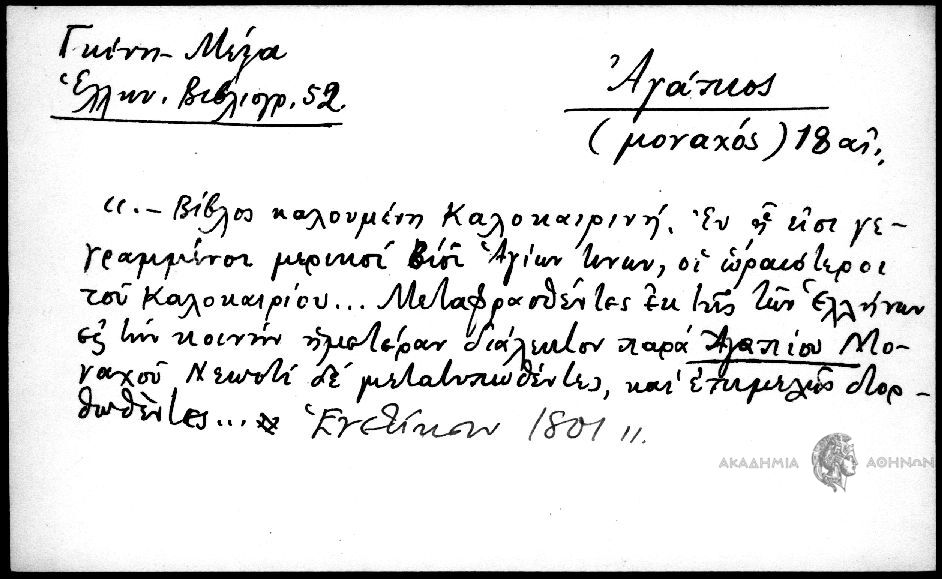 Γκίνη - Μέξα
Ἑλλην. Βιβλιογρ. 52
Ἀγάπιος
(μοναχός) 18 αἰ.
«.- Βίβλος καλουμένη Καλοκαιρινή. Ἐν ᾗ εἰσι γε-
γραμμένοι μερικοί Βίοι Ἁγίων τινων, οἱ ὡραιότεροι
τοῦ Καλοκαιρίου... Μεταφρασθέντες ἐκ τῆς τῶν Ἑλλήνων
εἰς τήν κοινήν ἡμετέραν διάλεκτον παρά Ἀγαπίου Μο-
ναχοῦ Νεωστί δέ μετατυπωθέντες, καί ἐπιμελῶς διορ-
θωθέντες... Ἐνετίησιν 1801».
ΑΚΑΔΗΜΙΑ ΑΘΗΝΩΝ